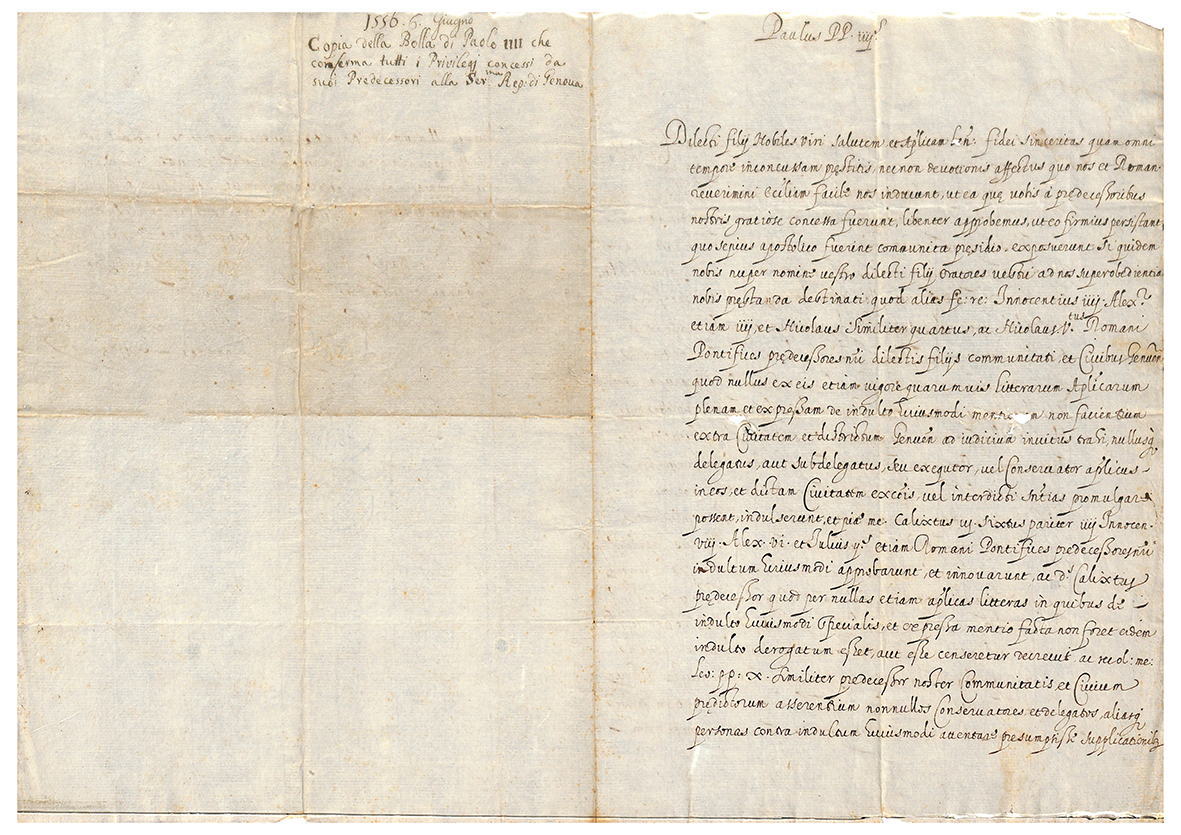 1556. 6. Giugno
Copia della Bolla di Paolo IIII che
conferma tutti i Privilegj concessi da
suoi Predecessori alla Ser.ma Rep: di Genova
Paulus PP. iiij.s
Dilecti filij Nobiles Viri salutem et Aplicam ben: fidei sinceritas quam omni
tempore inconcussam pręstitis, nec non devotionis affectus quo nos et Roman:
reverimini Eccliam facile nos inducunt, ut ea quę vobis à prędecessoribus
nostris gratiose concessa fuerunt, libenter approbemus, ut eo firmius persistant,
quo sepius apostolico fuerint comunita pręsidio. exposuerunt si quidem
nobis nuper nomine vestro dilecti filij Oratores vestri ad nos super obedientia
nobis pręstanda destinati quod alias fe: re: Innocentius iiij. Alex.r
etiam iiij, et Nicolaus similiter quartus, ac Nicolaus V.tus Romani
Pontifices prędecessores nri dilectis filijs communitati, et Civibus Genuen
quod nullus ex eis etiam vigore quarumvis litterarum Aplicarum
plenam et expressam de indulto huiusmodi mentionem non facientium
extra Civitatem et districtum Genuen ad iudicium invitus trahi, nullusq
delegatus, aut subdelegatus, seu exequtor, vel Conservator aplicus
in eos, et dictam Civitatem excois, vel interdicti sntias promulgare
possent, indulserunt, et pię me. Calixtus iij. Sixtus pariter iiij Innocen.
viij. Alex. vi. et Iulius ij.s etiam Romani Pontifices predecessores nri
indultum huiusmodi approbarunt, et innovarunt, ac d.s Calixtus
prędecessor quod per nullas etiam aplicas litteras in quibus de
indulto huiusmodi specialis, et expressa mentio facta non foret eidem
indulto derogatum esset, aut esse censeretur decrevit, ac recol: me:
Leo: pp: x. similiter prędecessor noster Communitatis, et Civium
prędictorum asserentium nonnullos Conservatores, et delegatos, aliasq
personas contra indultum huiusmodi aventare presumpsisse supplicationib